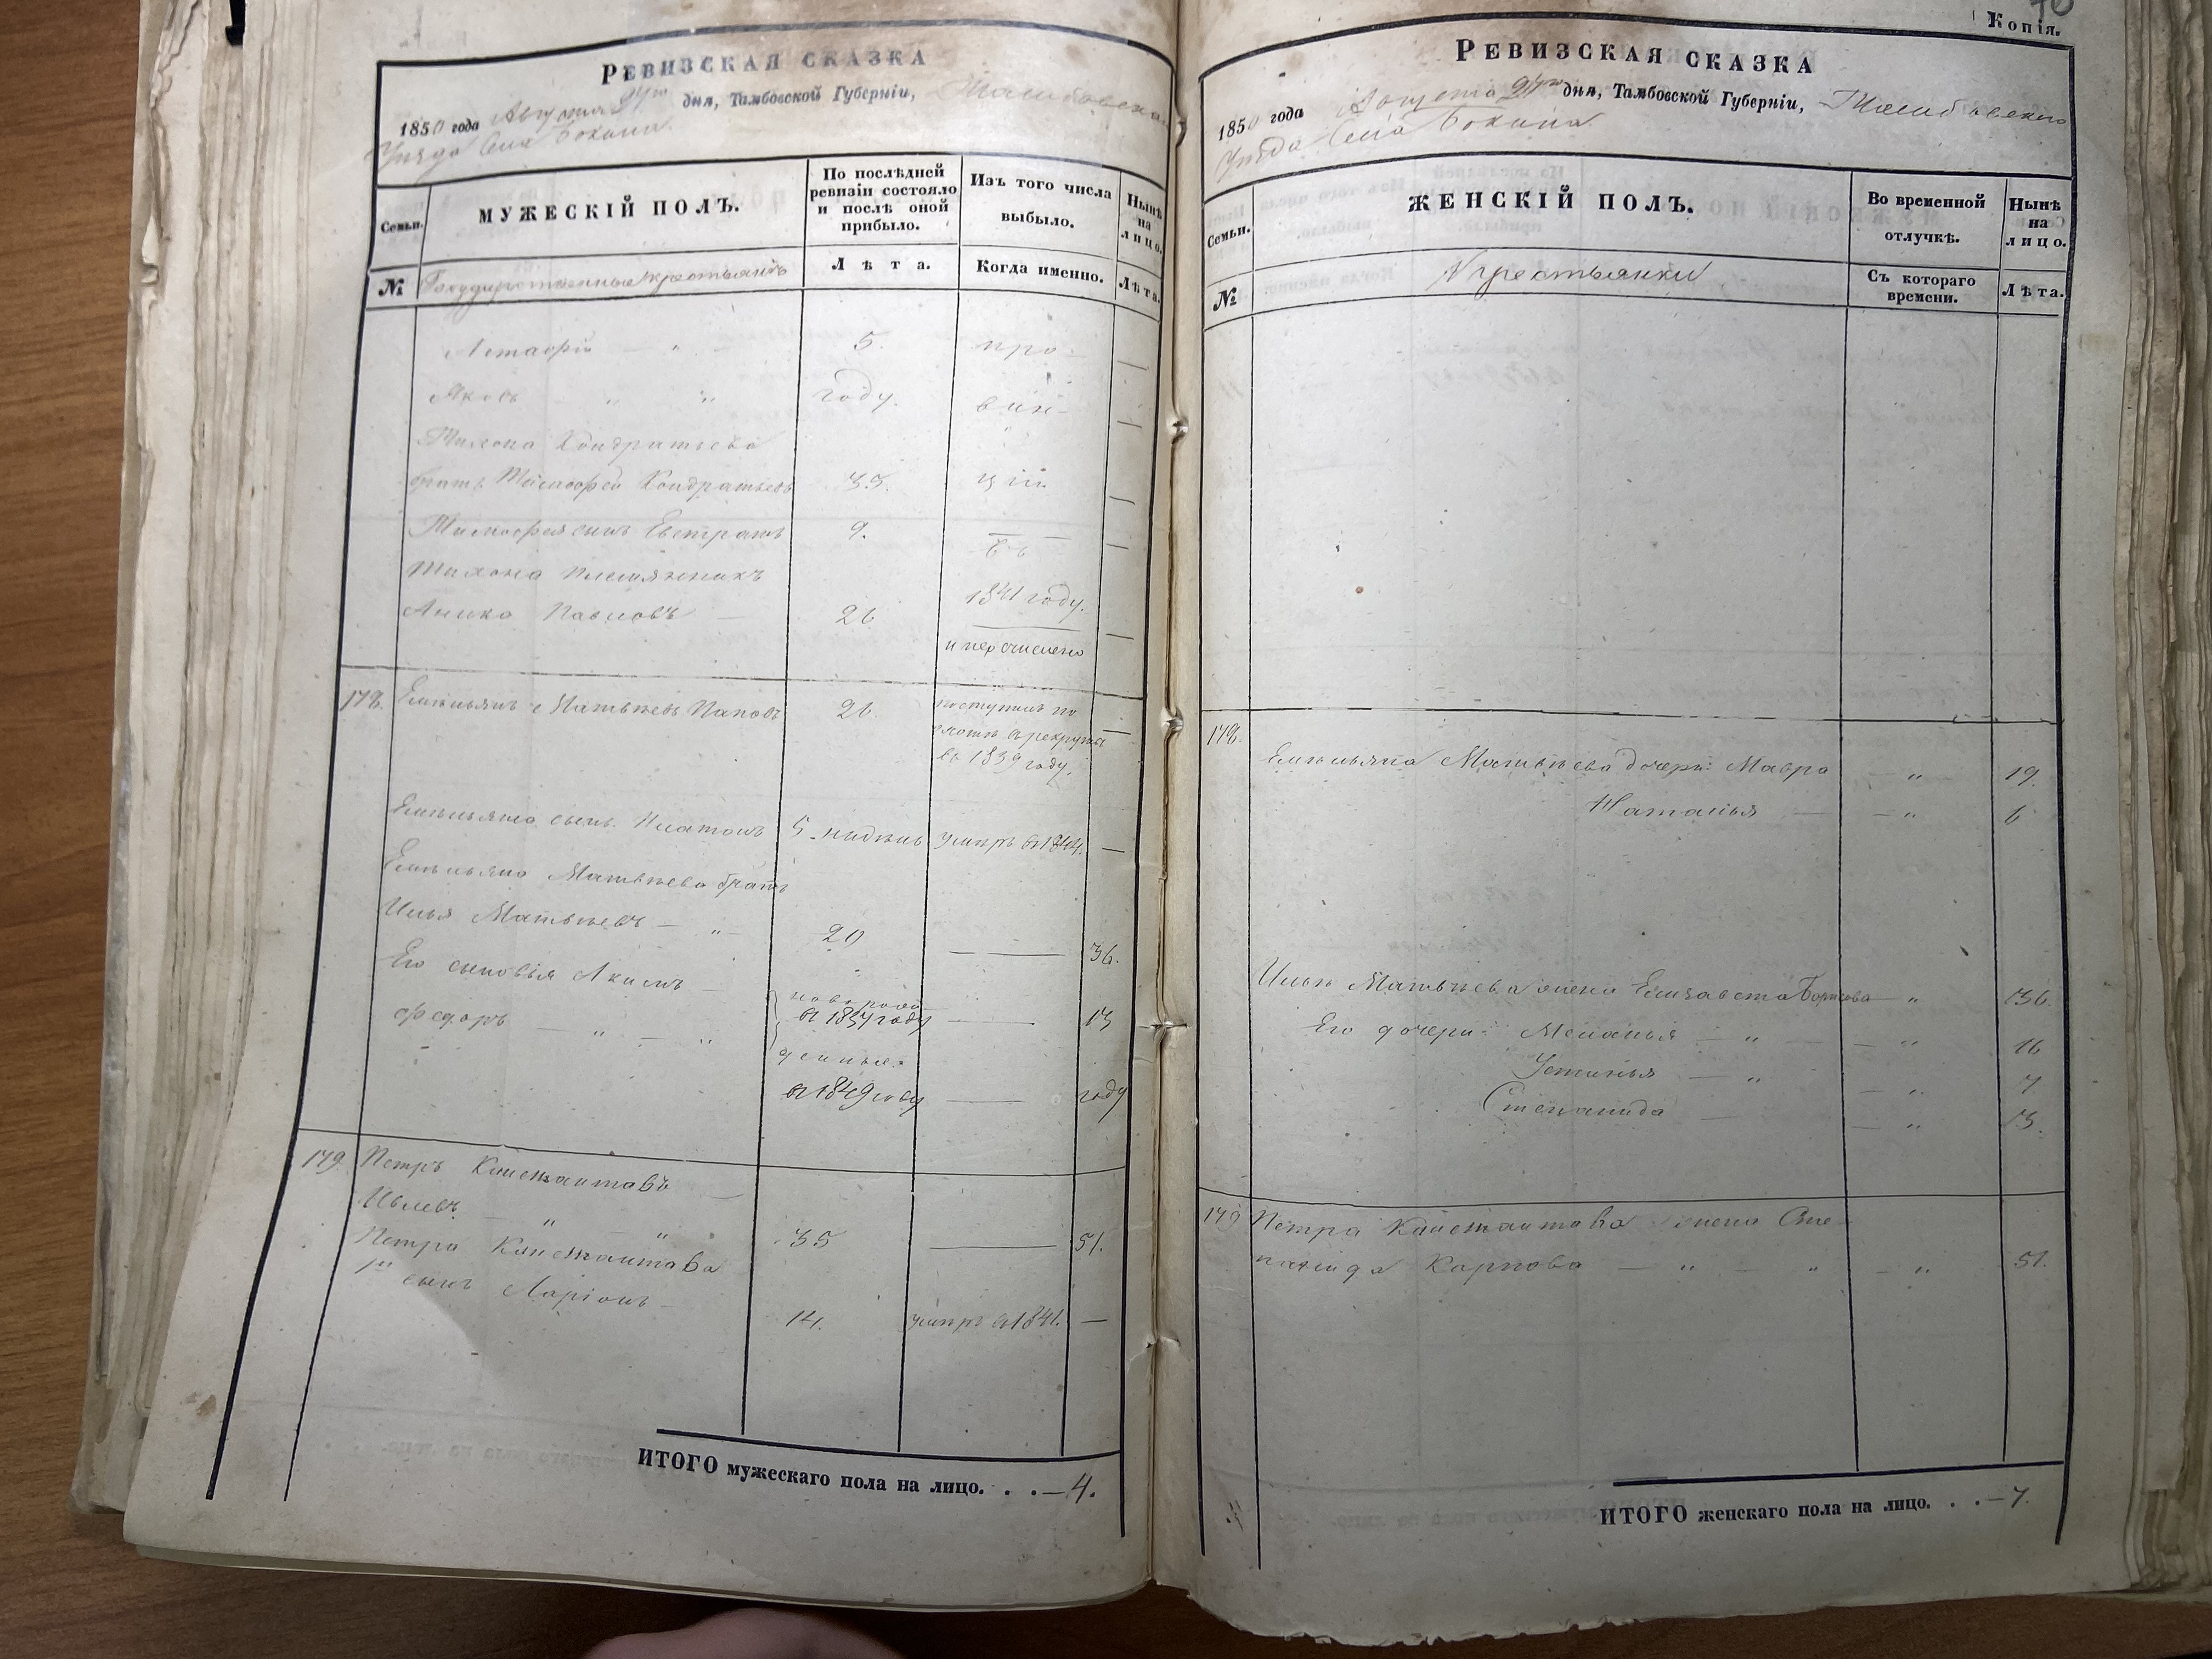 РЕВИЗСКАЯ СКАЗКА
1850 года Августа 24го дня, Тамбовской Губерніи, Тамбовскаго
Уѣзда Села Бокина.
Семьи.
МУЖЕСКІЙ ПОЛЪ.
По послѣдней ревизіи состояло и послѣ оной прибыло.
Изъ того числа выбыло.
Нынѣ на лицо.
№
Государственные крестьянѣ
Лѣта.
Когда именно.
Лѣта.
5. про-
Яковъ — " " году. вин-
Тихона Кондратьева
братъ Тимофей Кондратьевъ 35. ціи
Тимофея сынъ Евстратъ 9. въ
Тихона племянникъ 1841 году.
Аника Павловъ — 26 —
и перечислено
178. Емельянъ Матвѣевъ Паповъ 26 поступилъ по —
въ рекруты
въ 1839 году.
Емельяна сынъ Платонъ 5 недѣль умеръ въ 1844. —
Емельяна Матвѣева братъ
Илья Матвѣевъ — " — 20 — 36.
Его сыновья Акимъ — новорож-
въ 1837 году — 13
Федоръ — " — " денные.
въ 1849 году — году
179. Петръ Константавъ —
Ивлевъ — " " 35 — 51.
Петра Константава
1й сынъ Ларіонъ — 14. умеръ въ 1841. —
ИТОГО мужескаго пола на лицо. . . — 4.
Копія.
РЕВИЗСКАЯ СКАЗКА
1850 года Августа 24го дня, Тамбовской Губерніи, Тамбовскаго
Уѣзда Села Бокина.
Семьи.
ЖЕНСКІЙ ПОЛЪ.
Во временной отлучкѣ.
Нынѣ на лицо.
№
Крестьянки
Съ котораго времени.
Лѣта.
178.
Емельяна Матвѣева дочери: Мавра — " — 19.
Наталья — — " 6
Ильи Матвѣева жена Елизавета Борисова — " 36.
Его дочери: Меланья — " — — " 16
Устинья — " — " 7
Степанида — — " 3.
179 Петра Констаитава жена Сте-
панида Карпова — " — " — " 51.
ИТОГО женскаго пола на лицо. . . — 7.